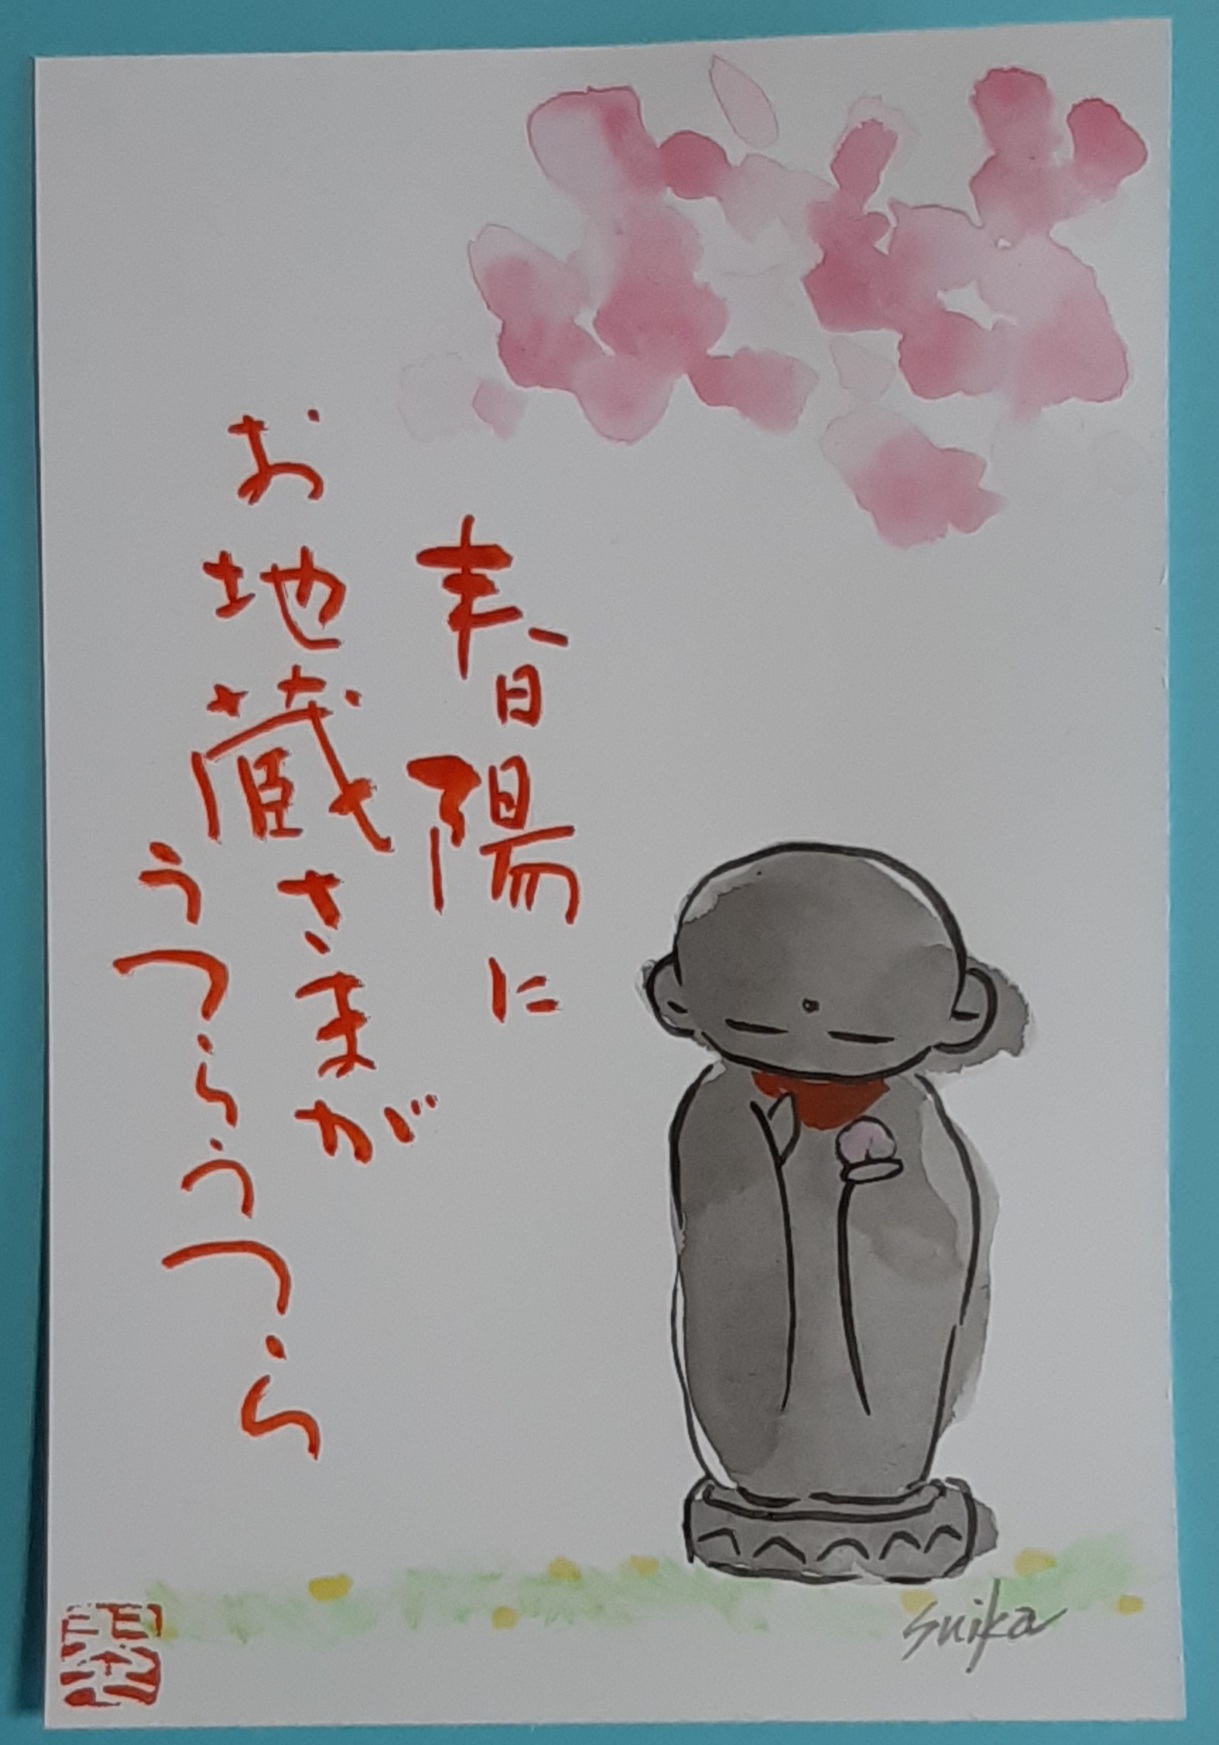 春陽に
お地蔵さまが
うつらうつら
suika